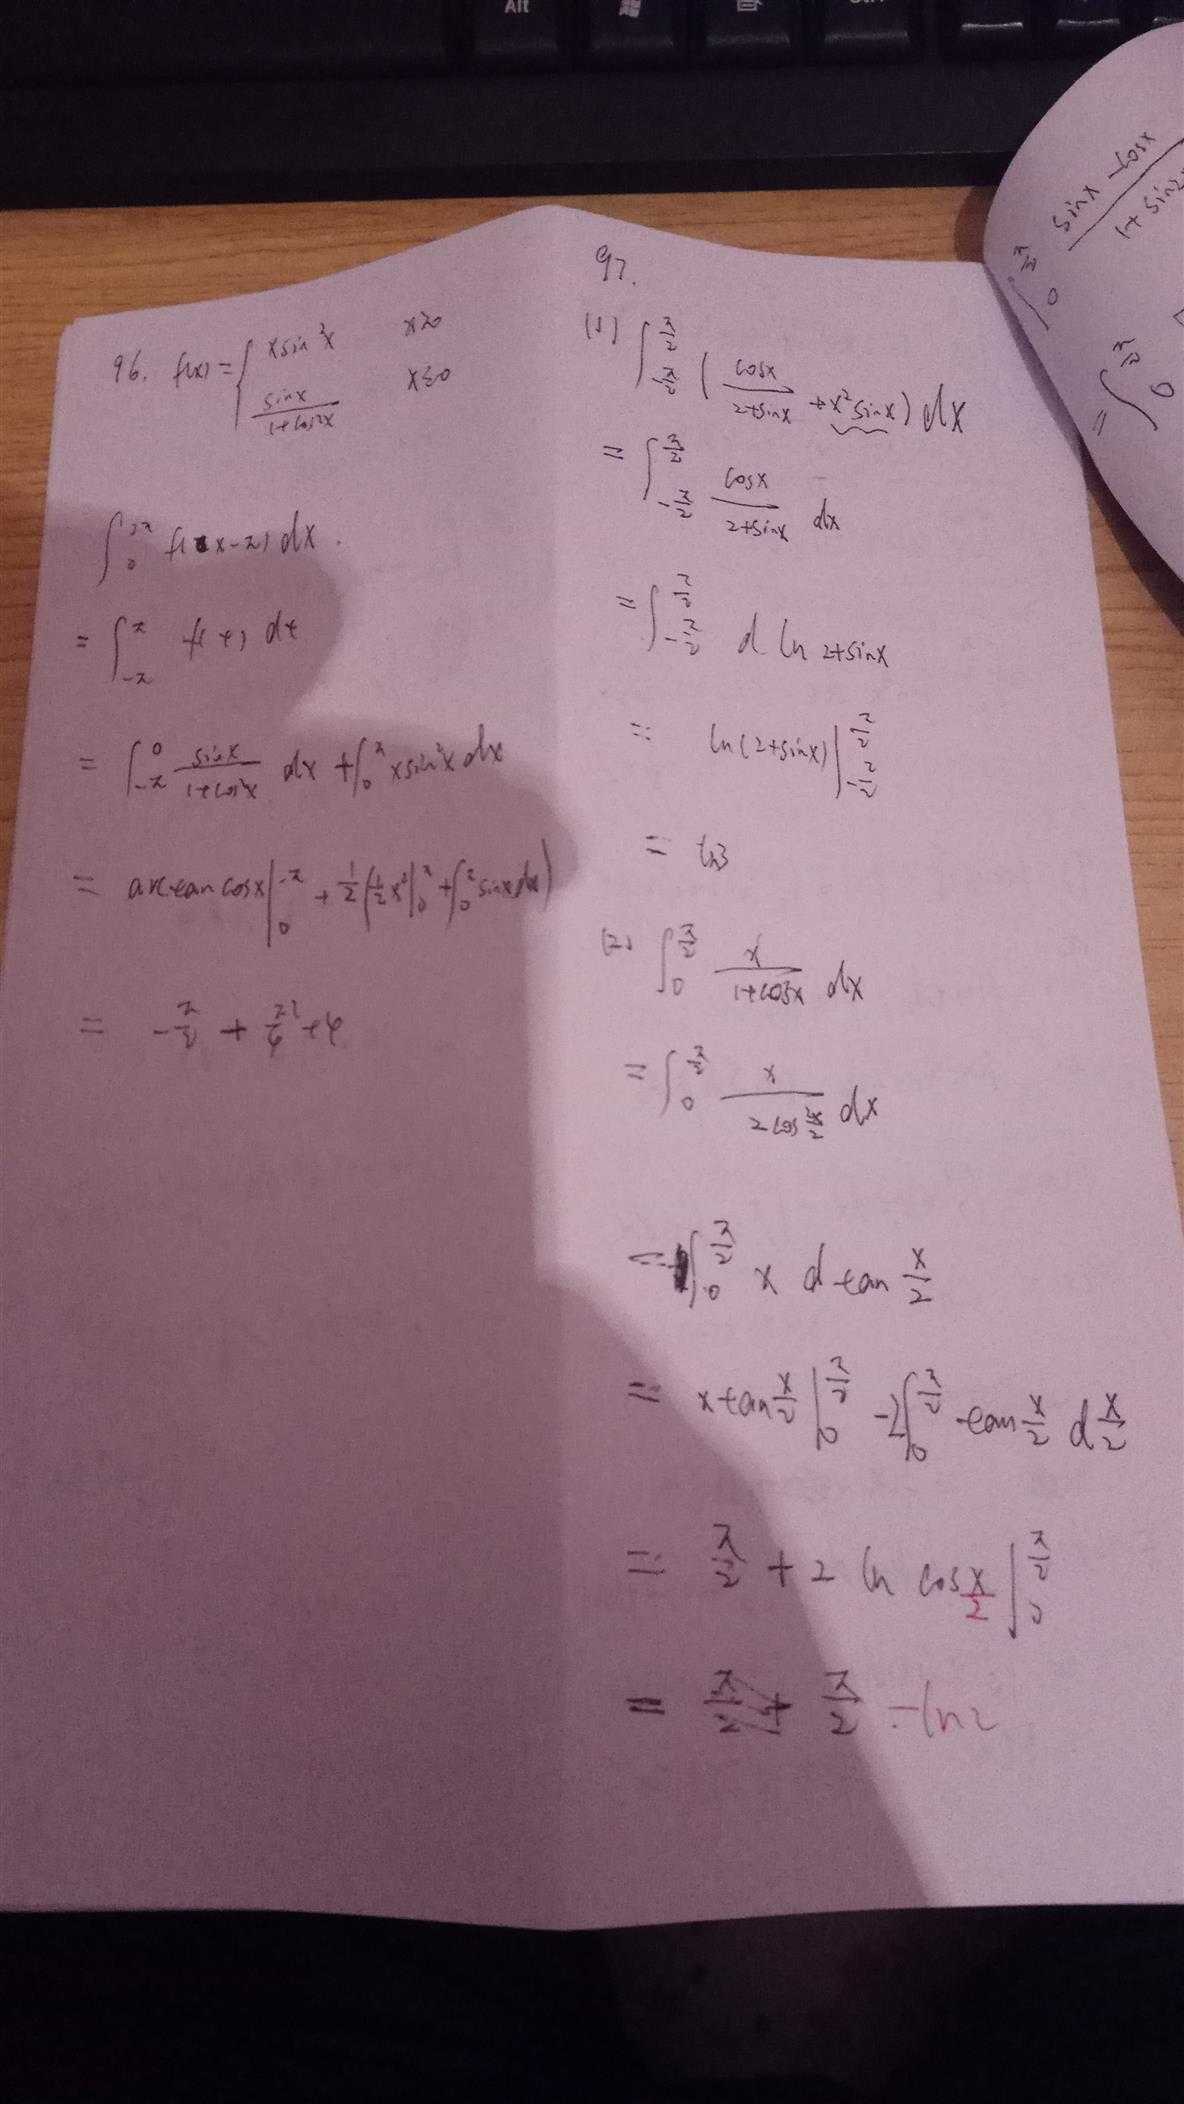 Alt
96. f(x) = { xsin²x x≥0
sinx/(1+cos²x) x≤0
∫_0^{2π} f(x-π) dx.
= ∫_{-π}^{π} f(t) dt
= ∫_{-π}^{0} sinx/(1+cos²x) dx + ∫_0^{π} xsin²x dx
= arctan cosx |_0^{-π} + 1/2 (1/2 x² |_0^{π} + ∫_0^{π} sinx dx)
= -π/2 + π²/4 +
97.
(1) ∫_{-π/2}^{π/2} (cosx/(2+sinx) + x² sinx) dx
= ∫_{-π/2}^{π/2} cosx/(2+sinx) dx
= ∫_{-π/2}^{π/2} d ln 2+sinx
= ln(2+sinx) |_{-π/2}^{π/2}
= ln3
(2) ∫_0^{π/2} x/(1+cosx) dx
= ∫_0^{π/2} x/(2cos²x/2) dx
= ∫_0^{π/2} x d tan x/2
= x tan x/2 |_0^{π/2} - 2∫_0^{π/2} tan x/2 d x/2
= π/2 + 2 ln cos x/2 |_0^{π/2}
= π/2 - ln2
∫_0^{π/2} sinx-cosx/1+sin2
= ∫_0^{π/2}